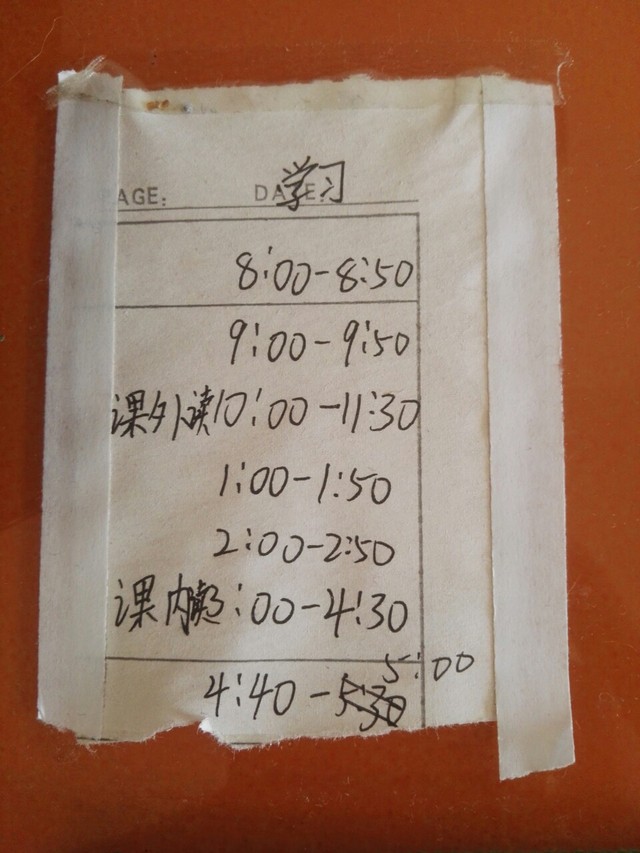 AGE: DATE: 学习
8:00-8:50
9:00-9:50
课外读10:00-11:30
1:00-1:50
2:00-2:50
课内读3:00-4:30
5:00
4:40-5:30